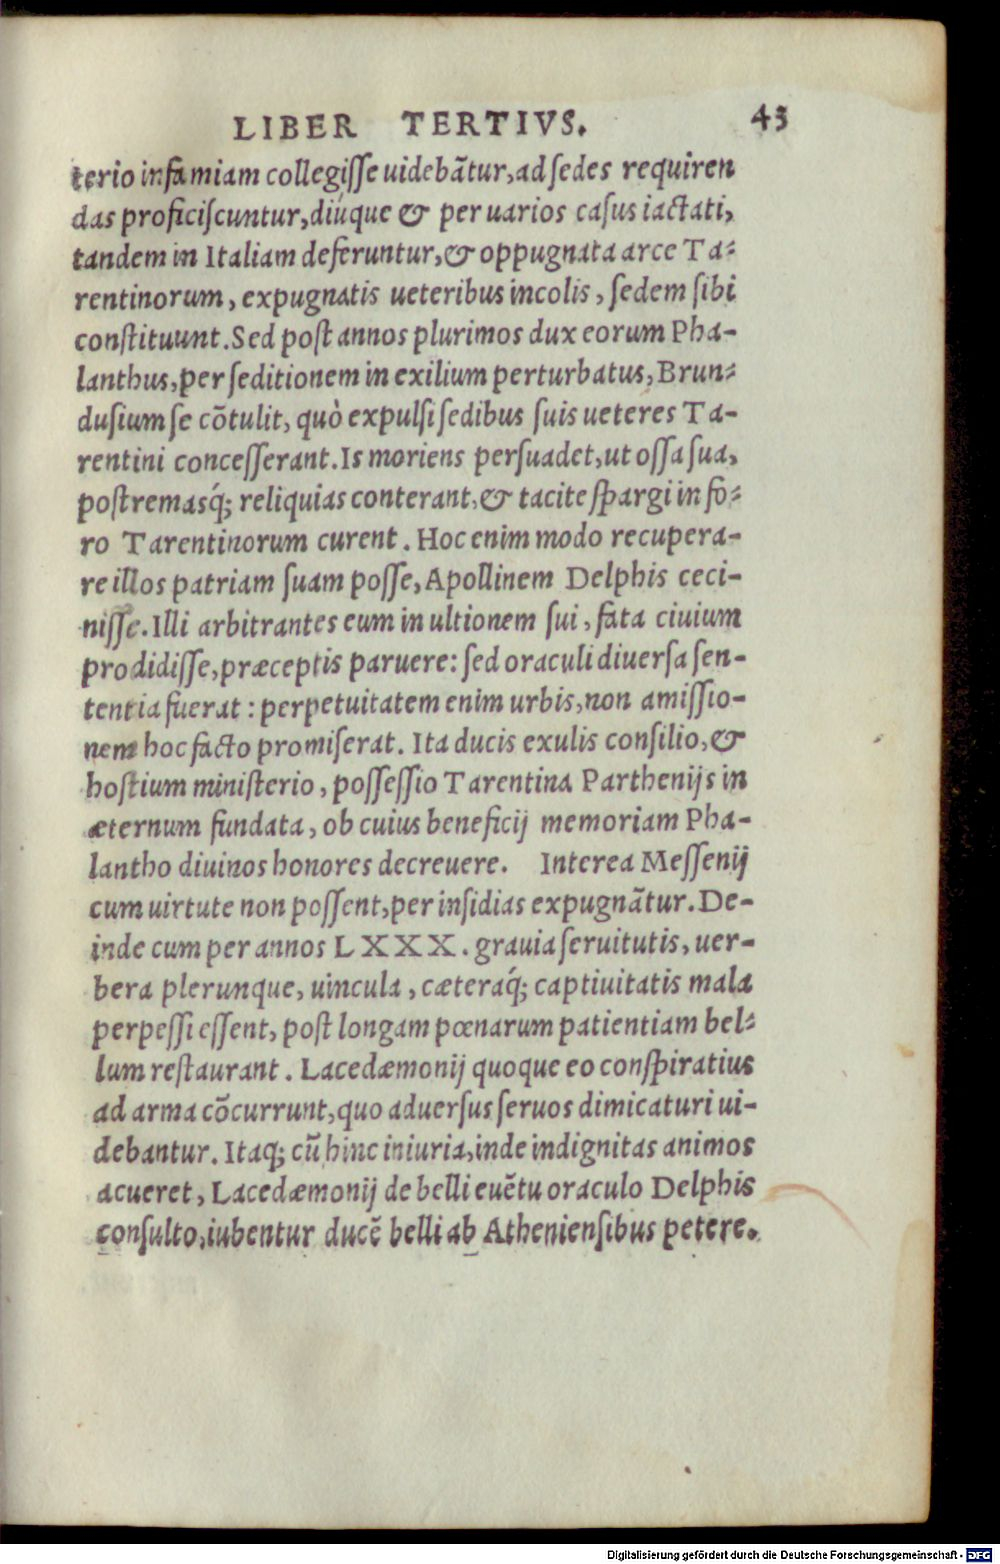 LIBER TERTIVS. 43
terio infamiam collegiſſe uidebãtur, ad ſedes requiren
das proficiſcuntur, diúque & per uarios caſus iactati,
tandem in Italiam deferuntur, & oppugnata arce Ta-
rentinorum, expugnatis ueteribus incolis, ſedem ſibi
conſtituunt. Sed poſt annos plurimos dux eorum Pha-
lanthus, per ſeditionem in exilium perturbatus, Brun-
duſium ſe cõtulit, quò expulſi ſedibus ſuis ueteres Ta-
rentini conceſſerant. Is moriens perſuadet, ut oſſa ſua,
poſtremasq́; reliquias conterant, & tacite ſpargi in fo-
ro Tarentinorum curent. Hoc enim modo recupera-
re illos patriam ſuam poſſe, Apollinem Delphis ceci-
niſſe. Illi arbitrantes eum in ultionem ſui, fata ciuium
prodidiſſe, præceptis paruere: ſed oraculi diuerſa ſen-
tentia fuerat: perpetuitatem enim urbis, non amiſſio-
nem hoc facto promiſerat. Ita ducis exulis conſilio, &
hoſtium miniſterio, poſſeſſio Tarentina Parthenijs in
æternum fundata, ob cuius beneficij memoriam Pha-
lantho diuinos honores decreuere. Interea Meſſenij
cum uirtute non poſſent, per inſidias expugnãtur. De-
inde cum per annos LXXX. grauia ſeruitutis, uer-
bera plerunque, uincula, cæteraq́; captiuitatis mala
perpeſſi eſſent, poſt longam pœnarum patientiam bel-
lum reſtaurant. Lacedæmonij quoque eo conſpiratius
ad arma cõcurrunt, quo aduerſus ſeruos dimicaturi ui-
debantur. Itaq; cũ hinc iniuria, inde indignitas animos
acueret, Lacedæmonij de belli euẽtu oraculo Delphis
conſulto, iubentur ducẽ belli ab Athenienſibus petere.
Digitalisierung gefördert durch die Deutsche Forschungsgemeinschaft - DFG